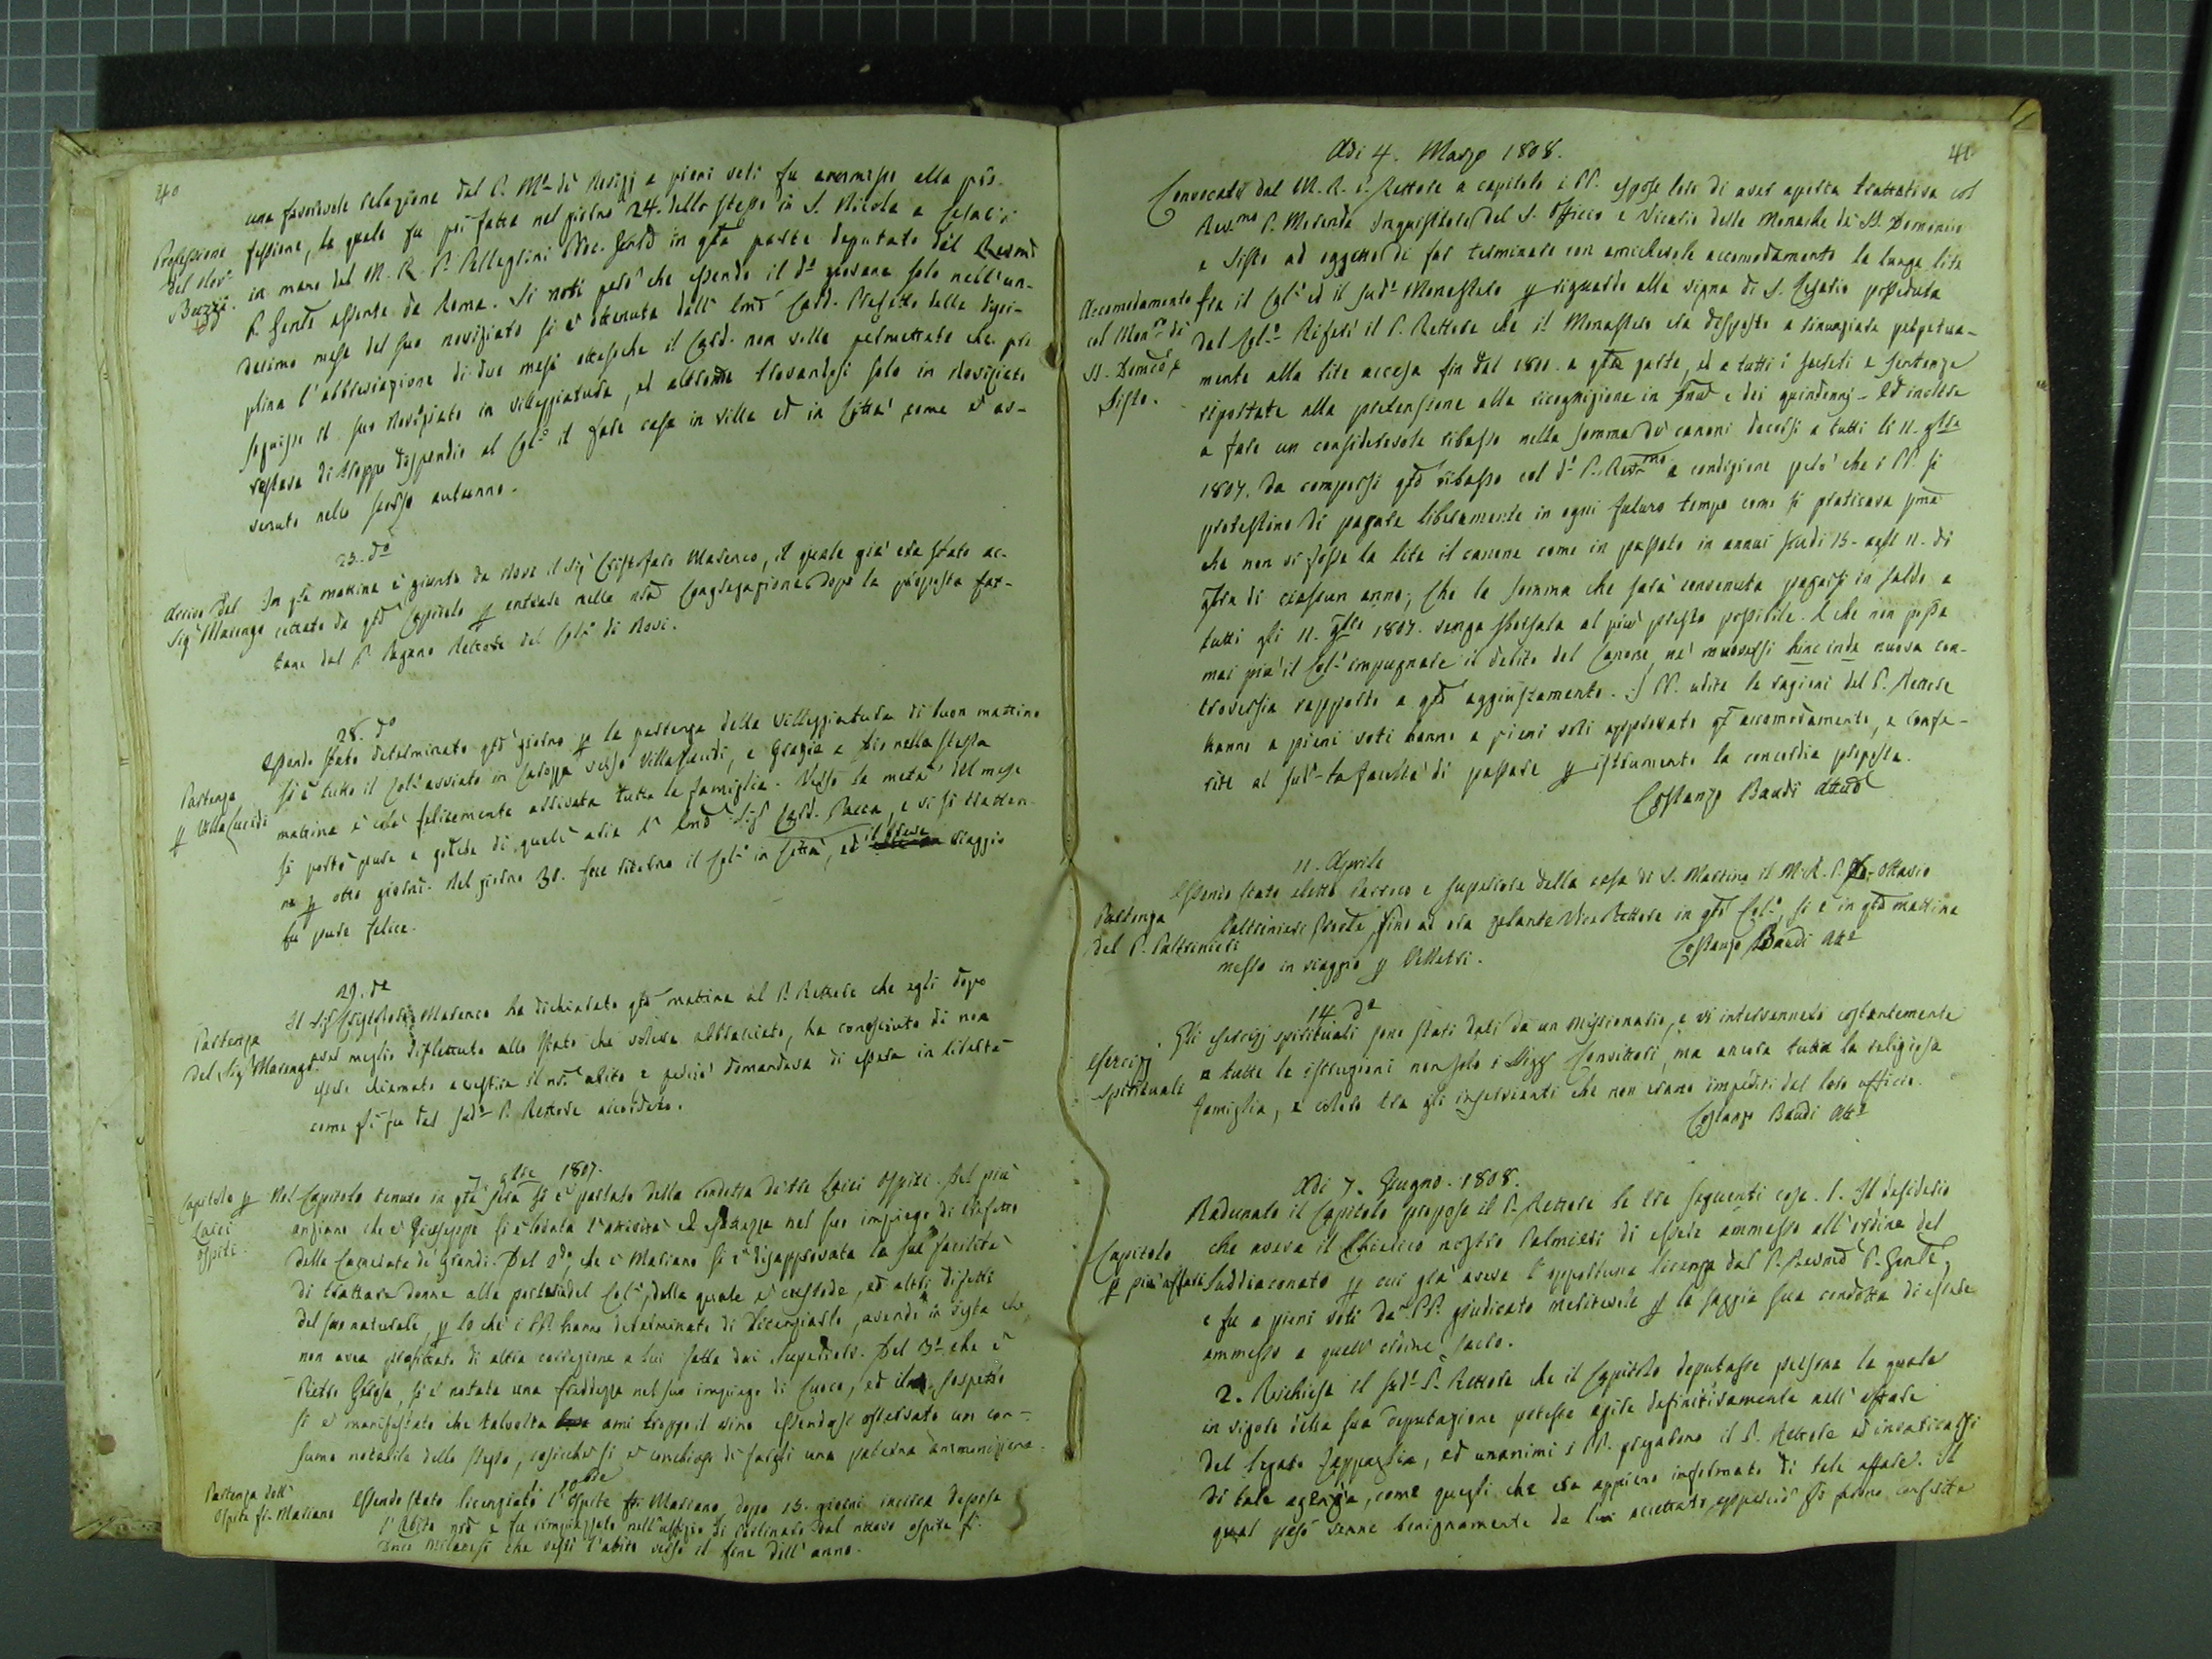 40
una favorevole relazione del P. M.ro de Novizj a pieni voti fu ammesso alla pro-
Professione
del Nov.o
Buzzi.
fessione, la quale fu poi fatta nel giorno 24. dello stesso in S. Nicola a Cesarini
in mano del M. R. P. Pellegrini Vic. Gnrle in qta parte deputato dal Revmo
P. Gnrle assente da Roma. Si noti però che essendo il do giovane solo nell'un-
decimo mese del suo noviziato si è ottenuta dall' Emo Card. Prefetto della disci-
plina l'abbreviazione di due mesi attesoche il Card. non volle permettere che pro
seguisse il suo Noviziato in villeggiatura, ed altronde trovandosi solo in Noviziato
restava di troppo dispendio al Col.o il fare casa in villa ed in Città, come è av-
venuto nello scorso autunno.
23. do
Arrivo del
Sig.r Marengo
In qta mattina è giunto da Novi il Sig.r Cristoforo Marenco, il quale già era stato ac-
cettato da qto Capitolo p entrare nella nra Congregazione dopo la proposta fat-
tane dal P. Pagano Rettore del Col.o di Novi.
28. do
Partenza
p Villa Lucidi
Essendo stato determinato qto giorno p la partenza della Villeggiatura di buon mattino
si è tutto il Col.o avviato in Carozza verso Villa Lucidi, e grazie a Dio nella stessa
mattina è colà felicemente arrivata tutta la famiglia. Verso la metà del mese
si portò pure a godere di quell' aria l' Emo Sig.r Card. Pacca, e vi si tratten-
ne p otto giorni. Nel giorno 30. fece ritorno il Col.o in Città, ed il breve viaggio
fu pure felice.
29. do
Partenza
del Sig.r Marengo.
Il Sig.r Cristoforo Marenco ha dichiarato qta mattina al P. Rettore che egli dopo
aver meglio riflettuto allo stato che voleva abbracciare, ha conosciuto di non
essere chiamato a vestire il nro abito e perciò domandava di essere in libertà
come gli fu dal sud.o P. Rettore accordato.
7 1807.
Capitolo p
Laici
Ospiti.
Nel Capitolo tenuto in qta sera si è parlato della condotta di tre Laici Ospiti. Del più
anziano che è Giuseppe si è lodata l'attività ed esattezza nel suo impiego di Prefetto
della Camerata de' Grandi. Del 2do, che è Mariano si è disapprovata la sua facilità
di trattare donne alla porteria del Col.o, della quale è custode, ed altri difetti
del suo naturale, p lo che i PP. hanno determinato di licenziarlo, avendo in vista che
non avea profittato di altra correzione a lui fatta dai Superiori. Del 3.o che è
Pietro si è notata una freddezza nel suo impiego di Cuoco, ed il sospetto
si è manifestato che talvolta ami troppo il vino essendosi osservato un con-
sumo notabile dello stesso, cosicchè si è conchiuso di fargli una paterna ammonizione.
Partenza dell'
Ospite fr. Mariano
Essendo stato licenziato l'Ospite fr. Mariano, dopo 15. giorni incirca depose
l'Abito nro e fu rimpiazzato nell'uffizio di Portinaro dal nuovo ospite fr.
Milanesi che vestì l'abito verso il fine dell' anno.
41
Adi 4. Marzo 1808.
Convocati dal M. R. P. Rettore a capitolo i PP. espose loro di aver aperta trattativa col
Rev.mo P. Merenda Inquisitore del S. Officio e Vicario delle Monache di SS. Domenico
e Sisto ad oggetto di far terminare con amichevole accomodamento la lunga lite
Accomodamento
col Mon.ro di
SS. Domco e
Sisto.
fra il Col.o ed il sud.o Monastero p riguardo alla vigna di S. Cesario posseduta
dal Col.o Riferì il P. Rettore che il Monastero era disposto a rinunziare perpetua-
mente alla lite accesa fin dal 1801. a qta parte, ed a tutti i decreti e sentenze
riportate alla pretensione alla ricognizione in e dei quindennj - Ed inoltre
a fare un considerevole ribasso nella somma de' canoni decorsi a tutti li 11. 9bre
1807. da comporsi qto ribasso col d.o P. Rev.mo a condizione però che i PP. si
protestino di pagare liberamente in ogni futuro tempo come si praticava pma
che non vi fosse la lite il canone come in passato in annui scudi 15 - agli 11. di
9bre di ciascun anno; Che la somma che sarà convenuta pagarsi in saldo a
tutti gli 11. 9bre 1807. venga sborsata al più presto possibile. E che non possa
mai più il Col.o impugnare il debito del Canone, nè muoversi hinc inde nuova con-
troversia rapporto a qto aggiustamento. I PP. udite le ragioni del P. Rettore
hanno a pieni voti hanno a pieni voti approvato qt accomodamento, e confe-
rite al sud.o la facoltà di passare p istrumento la concordia proposta.
Costanzo Baudi Attuo
11. Aprile
Partenza
del P. Paltrinieri
Essendo stato eletto Parroco e superiore della casa di S. Martino il M. R. P. Ottavio
Paltrinieri Prete, fino ad ora zelante Vice Rettore in qto Col.o, si è in qta mattina
messo in viaggio p Velletri.
Costanzo Baudi Att.o
14 do
Esercizj
Spirituali
Gli esercizj spirituali sono stati dati da un Missionario, e vi intervennero costantemente
a tutte le istruzioni non solo i Sigg.ri Convittori, ma ancora tutta la religiosa
famiglia, e coloro tra gli inservienti che non erano impediti dal loro officio.
Costanzo Baudi Att.o
Adi 7. Giugno. 1808.
Radunato il Capitolo propose il P. Rettore le tre seguenti cose. 1. Il desiderio
Capitolo
p più affari
che aveva il Chierico nostro Palmieri di essere ammesso all' ordine del
Suddiaconato p cui già aveva l' opportuna licenza dal P. Revmo P. Gnrle,
e fu a pieni voti da' PP. giudicato meritevole p la saggia sua condotta di essere
ammesso a quell' ordine sacro.
2. Richiese il sud.o P. Rettore che il Capitolo deputasse persona la quale
in vigore della sua deputazione potesse agire definitivamente nell' affare
del legato Zappaglia, ed unanimi i PP. pregarono il P. Rettore ad incaricarsi
di tale agenzia, come quegli che era appieno informato di tale affare. Il
qual peso venne benignamente da lui accettato, eppperciò gli furono conferite